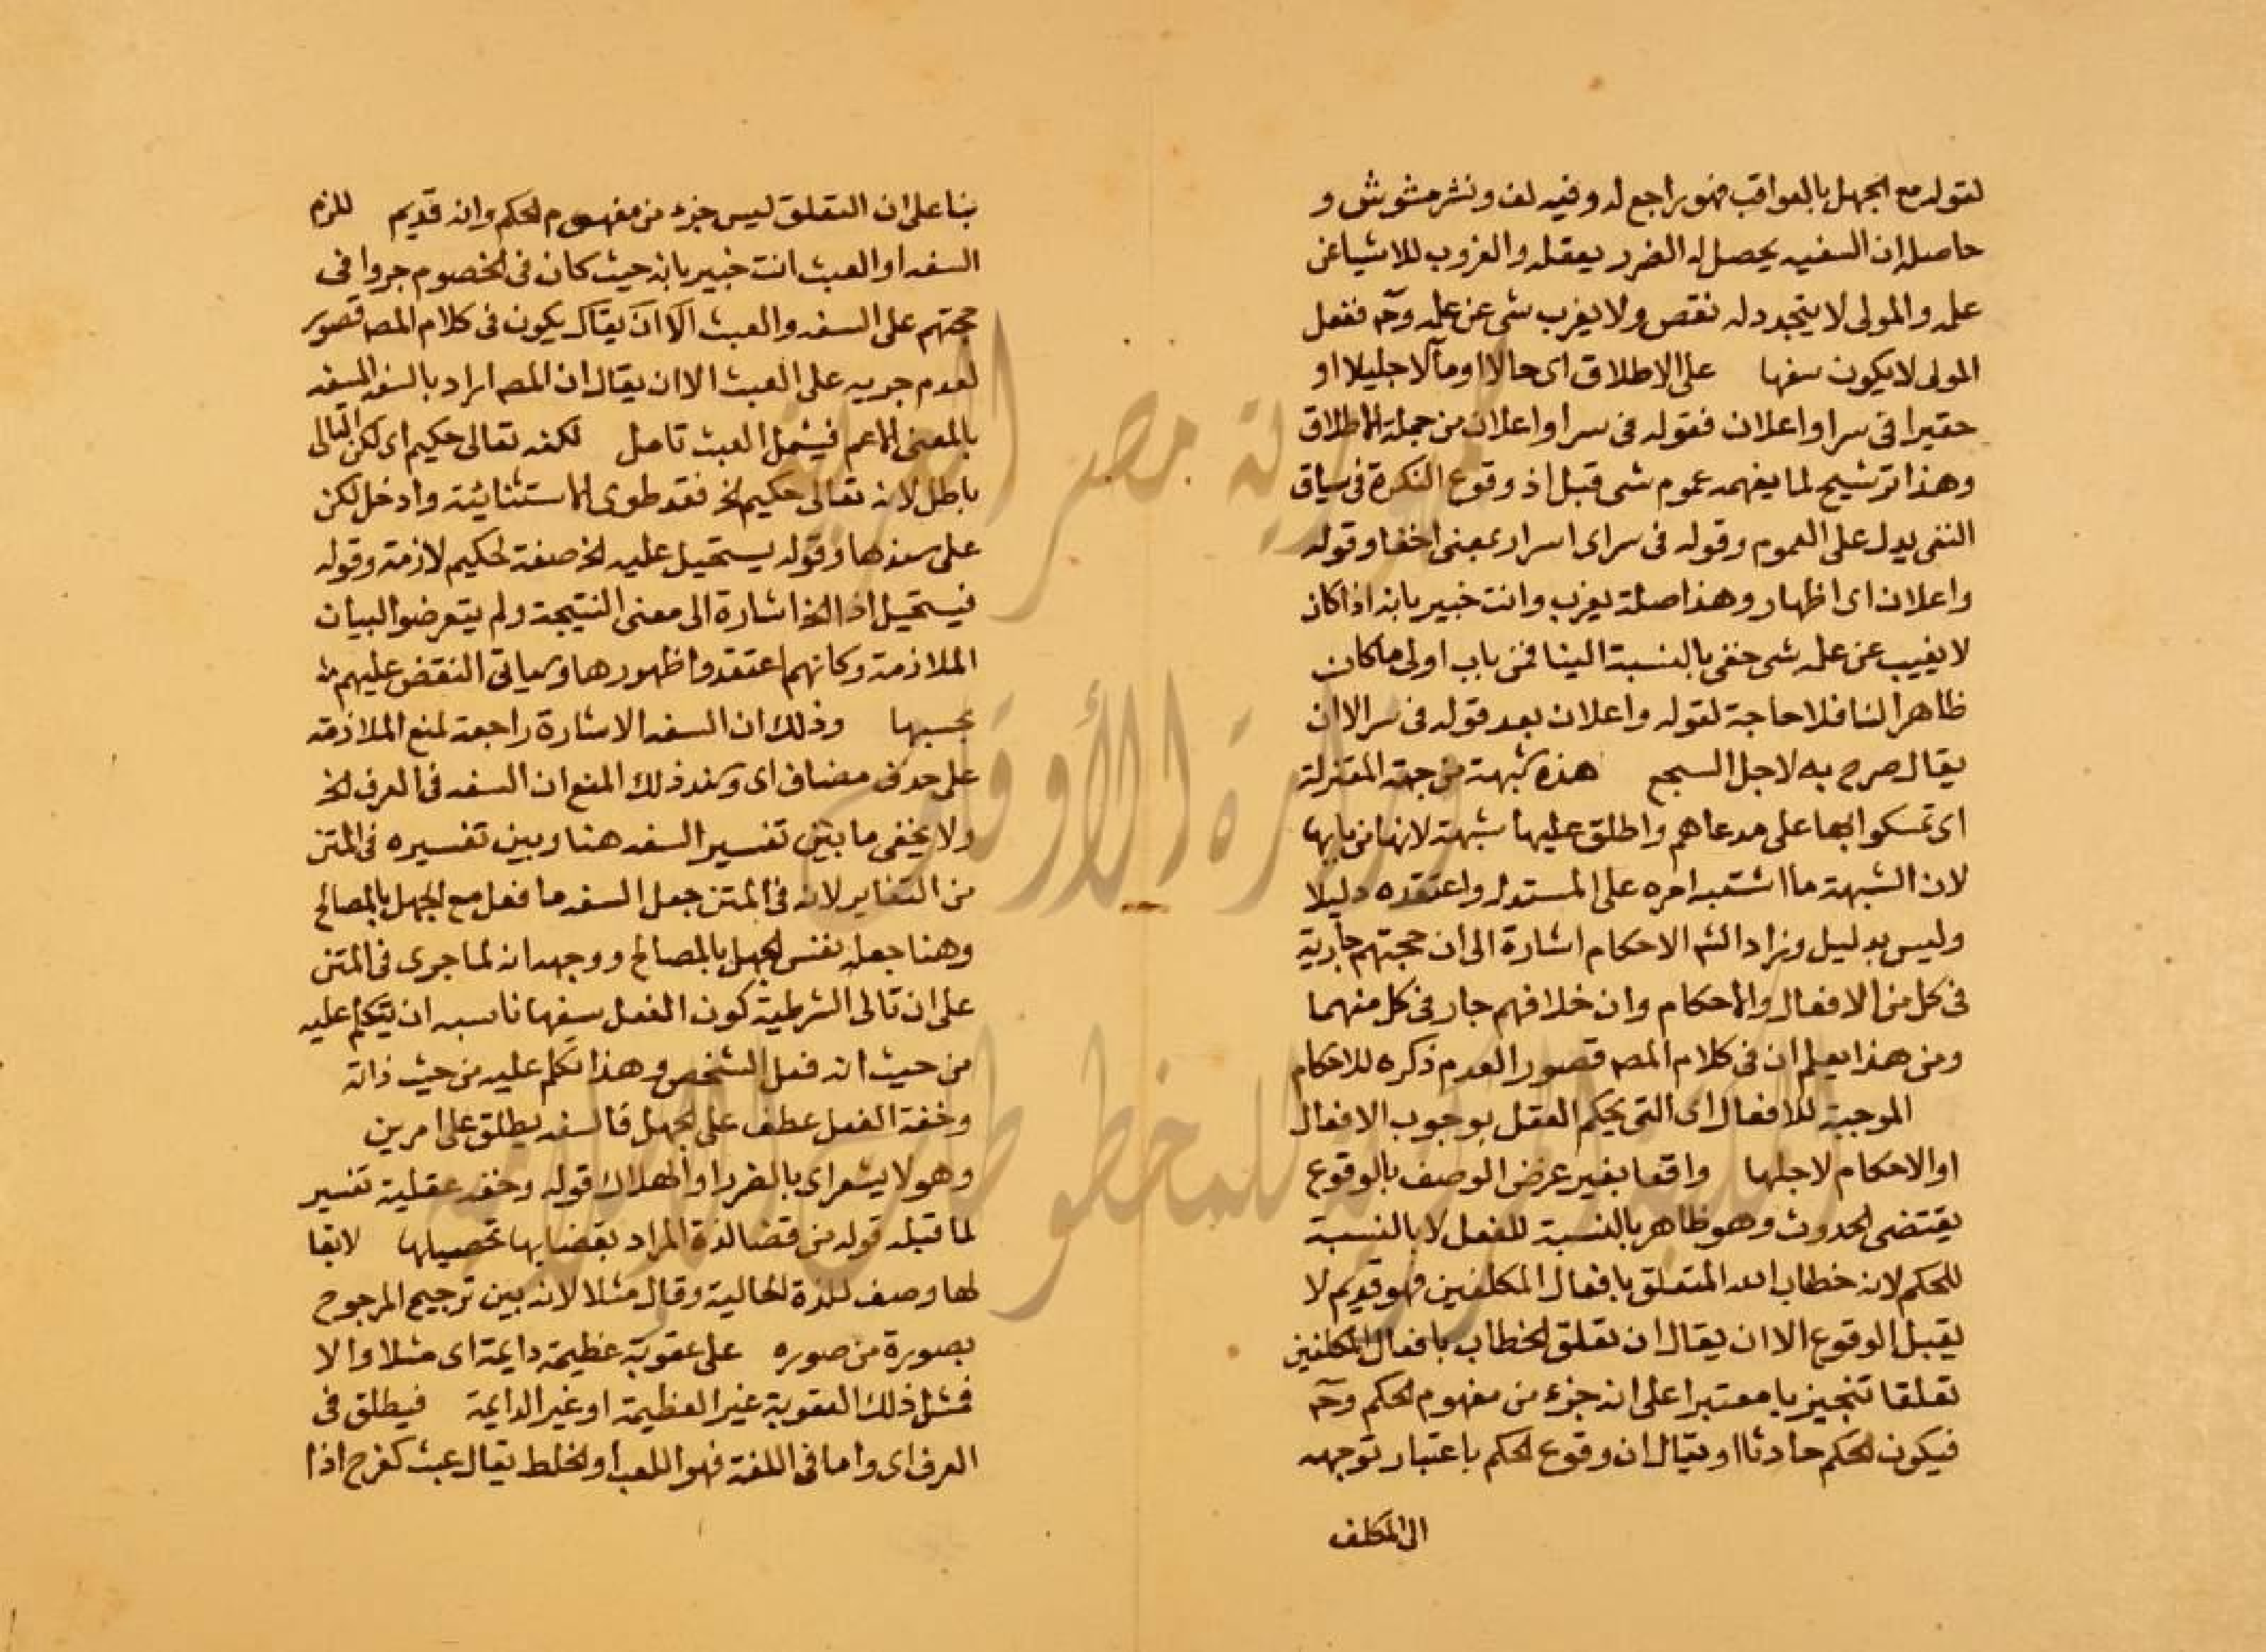 لقوله مع الجهل بالعواقب فهو راجع له وفيه لف ونشر مشوش و
حاصله ان السفيه يحصل له الضرر بعقله والعزوب للاشيا عن
علمه والمولى لا يتجدد له نقص ولا يعزب شى عن علمه وح ففعل
المولى لا يكون سفها على الاطلاق اى حالا او مآلا جليلا او
حقيرا فى سر او اعلان فقوله فى سر او اعلان من جملة الاطلاق
وهذا ترشيح لما يفهمه عموم شى قبل اذ وقوع النكرة فى سياق
النفى يدل على العموم وقوله فى سر اى اسرار بمعنى اخفا وقوله
واعلان اى اظهار وهذا صلة يعزب وانت خبير بانه اذا كان
لا يغيب عن علمه شى خفى بالنسبة الينا فمن باب اولى ما كان
ظاهرا لنا فلا حاجة لقوله واعلان بعد قوله فى سر الا ان
يقال صرح به لاجل السجع هذه شبهة من جهة المعتزلة
اى تمسكوا بها على مدعاهم واطلق عليها شبهة لانها من بابها
لان الشبهة ما اشتبه امره على المستدل واعتقده دليلا
وليس بدليل وزاد الشه الاحكام اشارة الى ان حجتهم جارية
فى كل من الافعال والاحكام وان خلافهم جار فى كل منهما
ومن هذا يعلم ان فى كلام المصه قصورا لعدم ذكره للاحكام
الموجبة للافعال اى التى يحكم العقل بوجوب الافعال
او الاحكام لاجلها واقعا بغير عرض الوصف بالوقوع
يقتضى الحدوث وهو ظاهر بالنسبة للفعل لا بالنسبة
للحكم لانه خطاب الله المتعلق بافعال المكلفين فهو قديم لا
يقبل الوقوع الا ان يقال ان تعلق الخطاب بافعال المكلفين
تعلقا تنجيزيا معتبرا على انه جزء من مفهوم الحكم وح
فيكون الحكم حادثا او يقال ان وقوع الحكم باعتبار توجهه
الى المكلف
بنا على ان التعلق ليس جزء من مفهوم الحكم وانه قديم للزم
السفه او العبث انت خبير بانه حيث كان فى الخصوم جروا فى
حجتهم على السفه والعبث الا ان يقال يكون فى كلام المصه قصور
لعدم جريه على العبث الا ان يقال ان المصه اراد بالسفه السفه
بالمعنى الاعم فيشمل العبث تامل لكنه تعالى حكيم اى لكن التالى
باطل لانه تعالى حكيم الخ فقد طوى الاستثنائية وادخل لكن
على سندها وقوله يستحيل عليه الخ صفة لحكيم لازمة وقوله
فيستحيل اذا الخ اشارة الى معنى النتيجة ولم يتعرضوا لبيان
الملازمة وكانهم اعتقدوا ظهورها وسياتى النقض عليهم من
بحسبها وذلك ان السفه الاشارة راجعة لمنع الملازمة
على حذف مضاف اى وسند ذلك المنع ان السفه فى العرف الخ
ولا يخفى ما بين تفسير السفه هنا وبين تفسيره فى المتن
من التغاير لانه فى المتن جعل السفه ما فعل مع الجهل بالمصالح
وهنا جعله نفس الجهل بالمصالح ووجهه انه لما جرى فى المتن
على ان تالى الشرطية كون الفعل سفها ناسبه ان يتكلم عليه
من حيث انه فعل الشخص وهذا تكلم عليه من حيث ذاته
وخفة الفعل عطف على الجهل فالسفه يطلق على امرين
وهو لا يشعر اى بالضرر او الهلاك قوله وخفة عقلية تفسير
لما قبله قوله من قضا لذة المراد بقضايها تحصيلها لا بقا
لها وصف للذة الحالية وقال مثلا لانه بين ترجيح المرجوح
بصورة من صوره على عقوبة عظيمة دايمة اى مثلا والا
فمثل ذلك العقوبة غير العظيمة او غير الدايمة فيطلق فى
العرف اى واما فى اللغة فهو اللعب او الخلط يقال عبث كفرح اذا